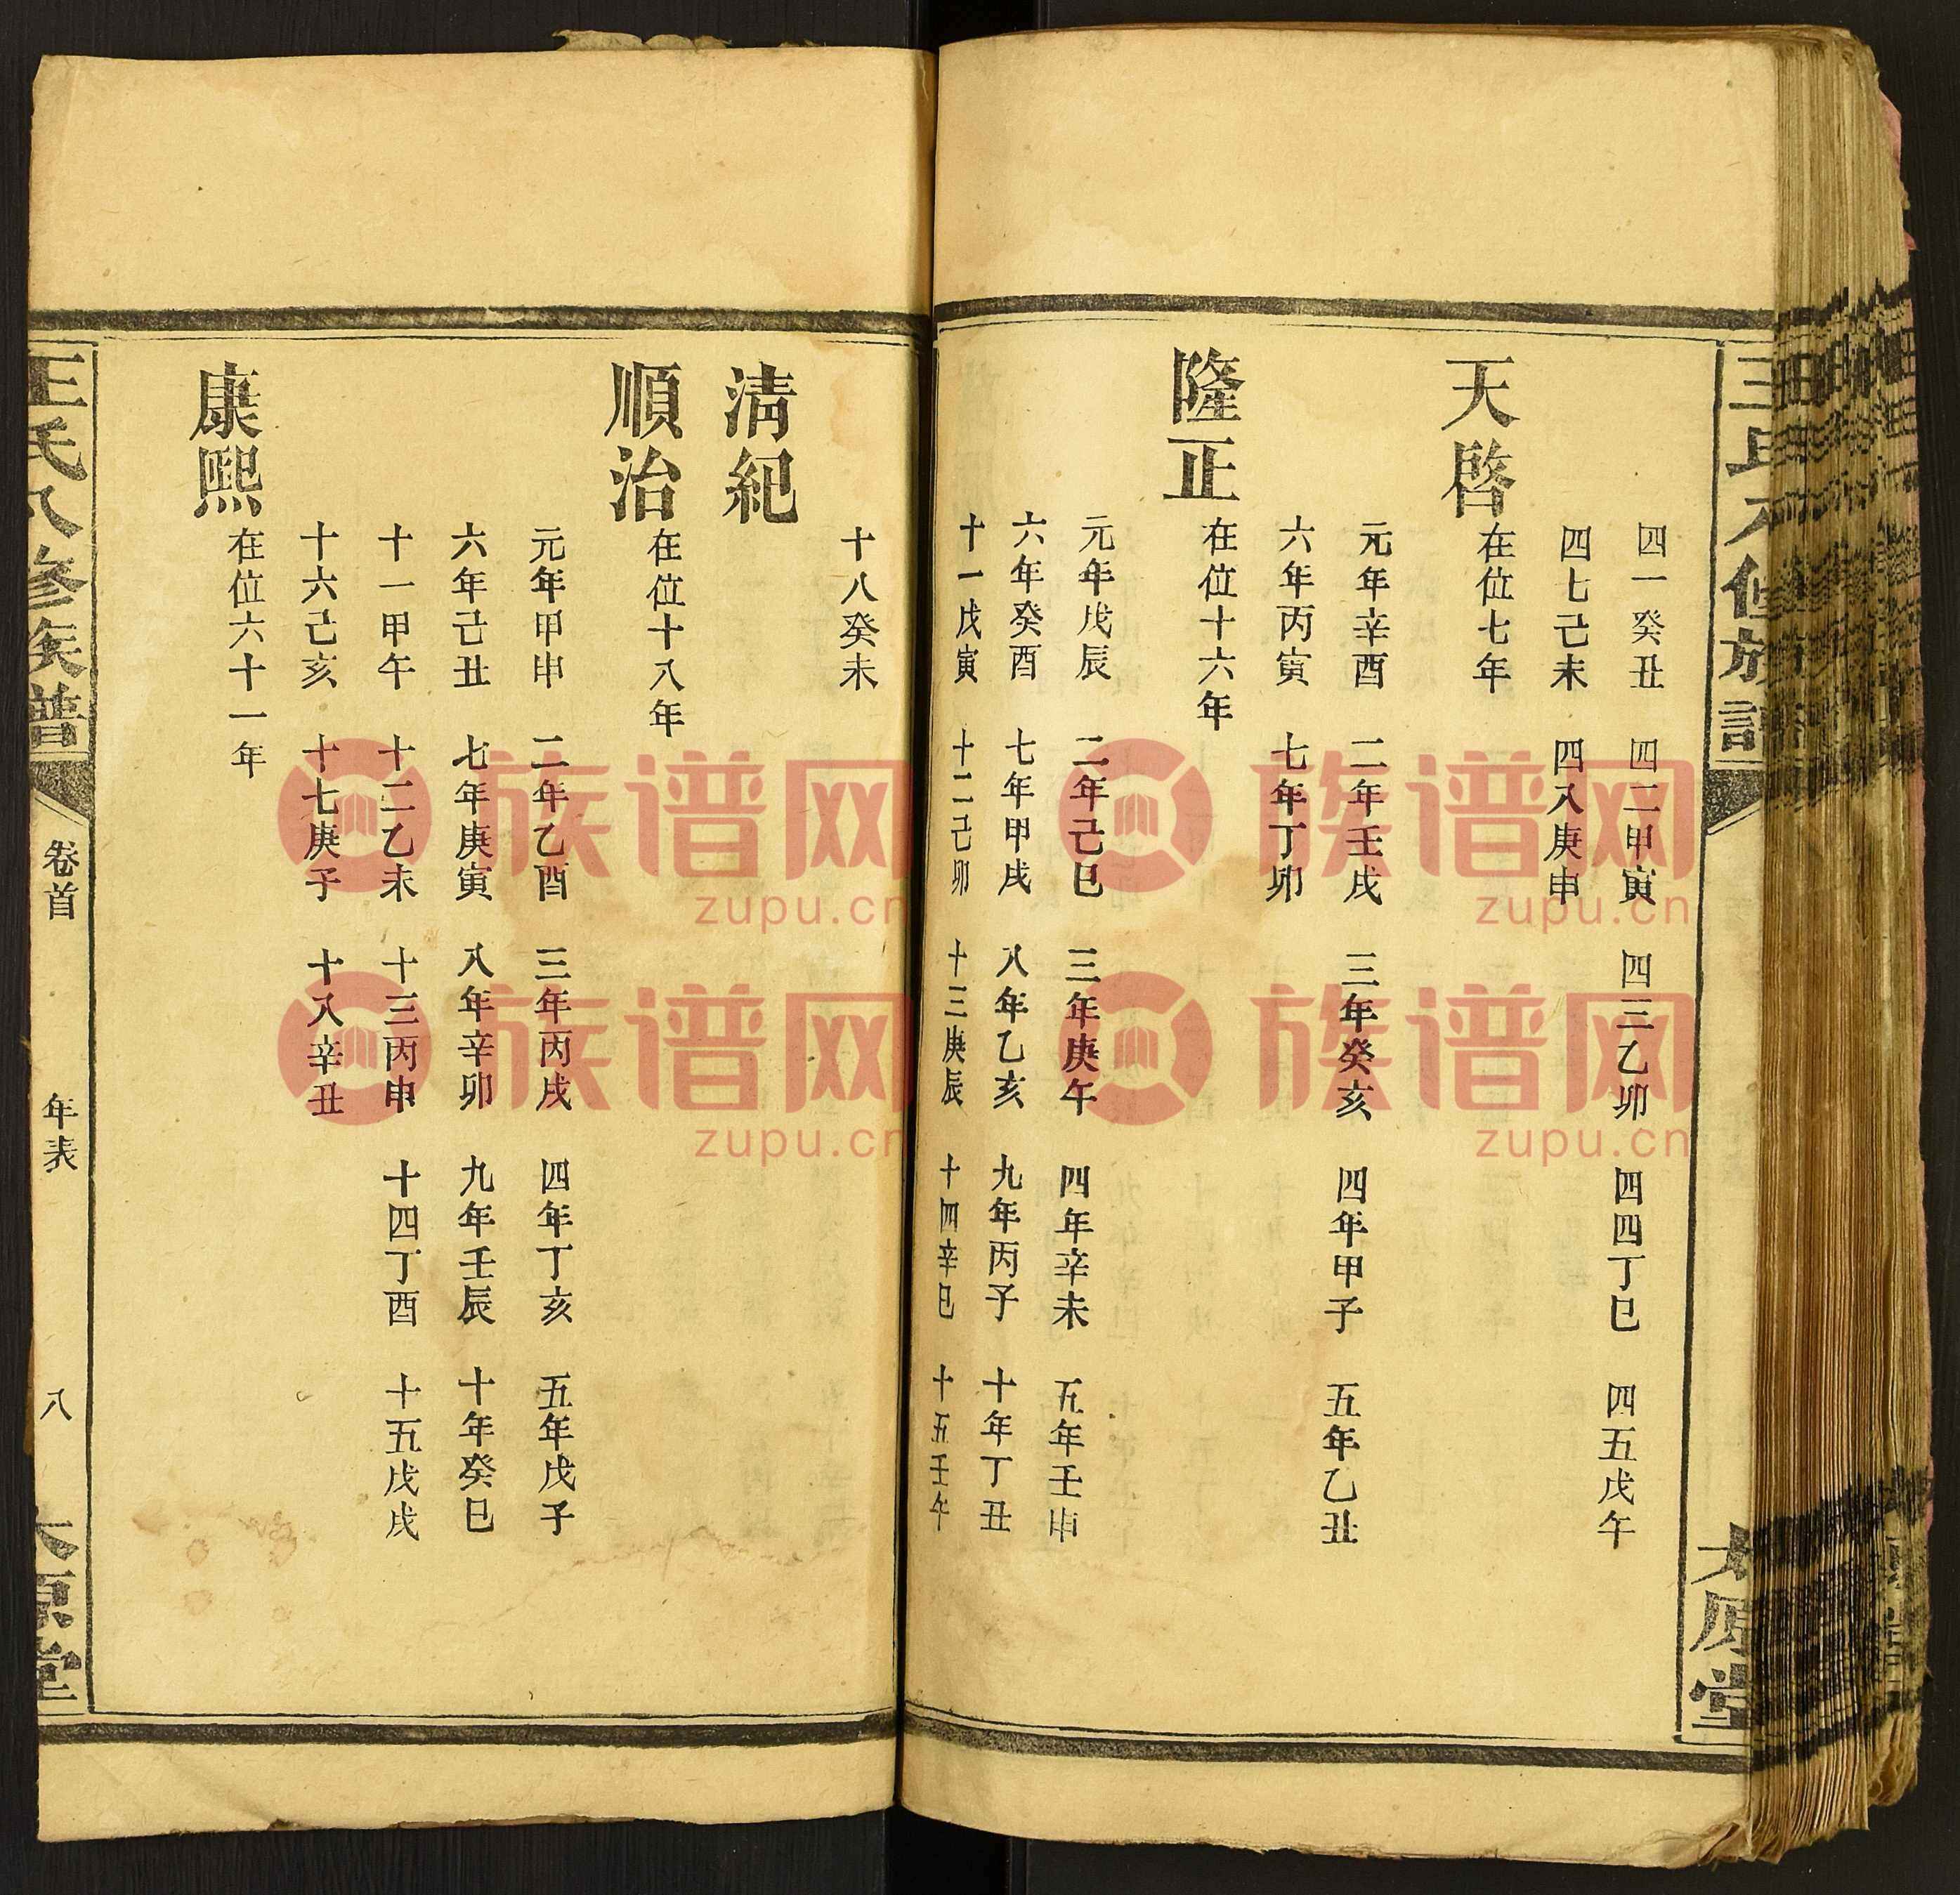 四一癸丑　四二甲寅　四三乙卯　四四丁巳　四五戊午
四七己未　四八庚申
天啓
在位七年
元年辛酉　二年壬戌　三年癸亥　四年甲子　五年乙丑
六年丙寅　七年丁卯
隆正
在位十六年
元年戊辰　二年己巳　三年庚午　四年辛未　五年壬申
六年癸酉　七年甲戌　八年乙亥　九年丙子　十年丁丑
十一戊寅　十二己卯　十三庚辰　十四辛巳　十五壬午
十八癸未
清紀
順治
在位十八年
元年甲申　二年乙酉　三年丙戌　四年丁亥　五年戊子
六年己丑　七年庚寅　八年辛卯　九年壬辰　十年癸巳
十一甲午　十二乙未　十三丙申　十四丁酉　十五戊戌
十六己亥　十七庚子　十八辛丑
康熙
在位六十一年
王氏八修族譜　卷首　年表　八　太原堂
族谱网
zupu.cn
族谱网
zupu.cn
族谱网
zupu.cn
族谱网
zupu.cn